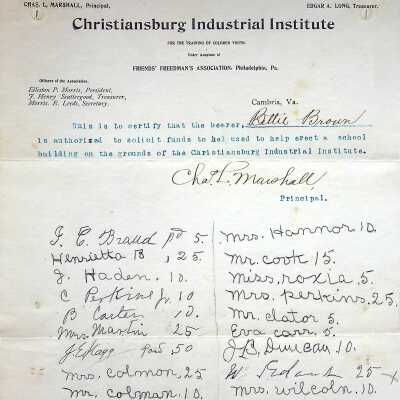 CHAS. L. MARSHALL, Principal.
EDGAR A. LONG, Treasurer.
Christiansburg Industrial Institute
FOR THE TRAINING OF COLORED YOUTH.
Under Auspices of
FRIENDS' FREEDMAN'S ASSOCIATION- Philadelphia, Pa.
Officers of the Association.
Elliston P. Morris, President,
T. Henry Scattergood, Treasurer,
Morris E. Leeds, Secretary.
Cambria, Va.
This is to certify that the bearer, Rettie Brown
is authorized to solicit funds to be used to help erect a school
building on the grounds of the Christiansburg Industrial Institute.
Chas. L. Marshall,
Principal.
pd 5.
Henrietta B , 25
J. Haden. 10.
C Perkins Jr. 10
B Carter 10
Mrs Martin 25
paid, 50
mrs. colmon, 25
mr. colman. 10.
mrs. Hannor 10.
mr. cook 15.
miss. roxia. 5
mrs. perkins. 25,
mr. clator 5.
Eva carr. 5.
J.C. Duncan. 10.
25
mrs. wilcoln. 10.